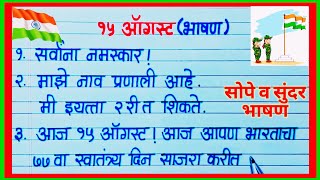 १५ ऑगस्ट (भाषण)
१. सर्वांना नमस्कार!
२. माझे नाव प्रणाली आहे.
मी इयत्ता २ रीत शिकते.
सोपे व सुंदर
भाषण
३. आज १५ ऑगस्ट! आज आपण भारताचा
७७ वा स्वातंत्र्य दिन साजरा करीत